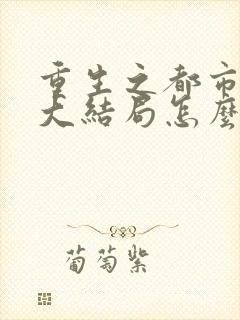 重生之都市
大结局怎么
葡萄紫